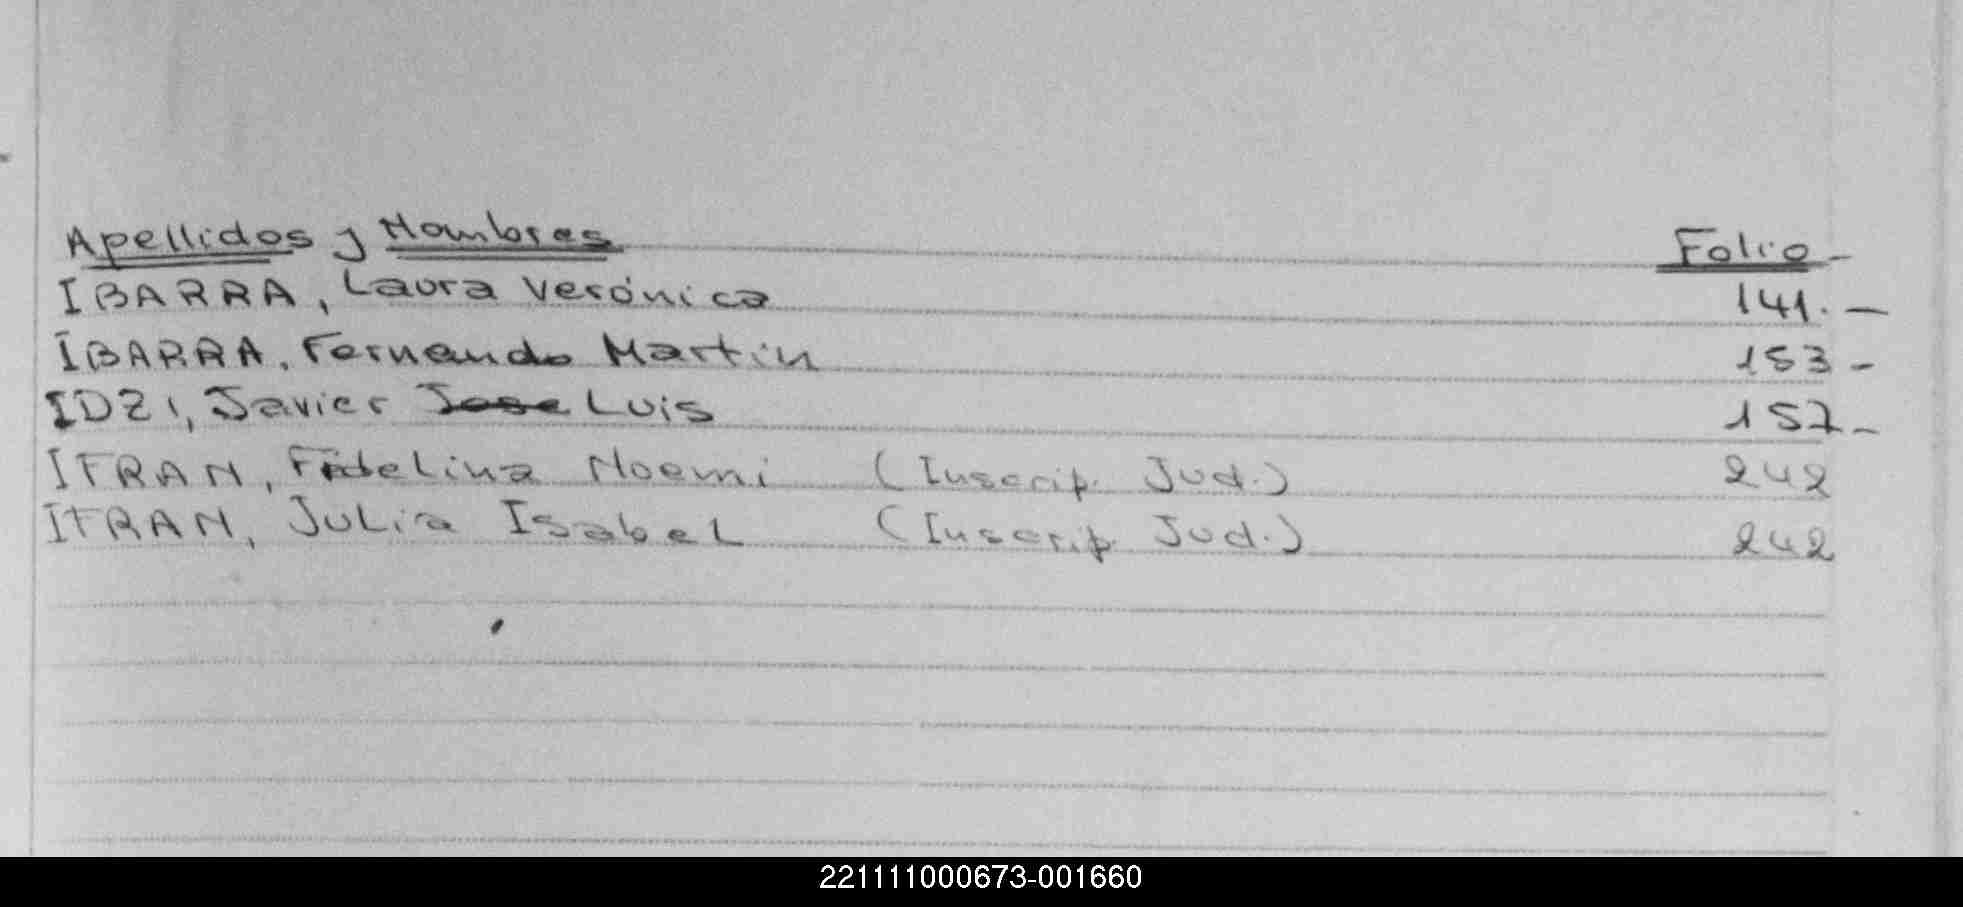 Apellidos y Nombres Folio-
IBARRA, Laura Verónica 141.-
IBARRA, Fernando Martin 153-
IDZI, Javier Jose Luis 157-
IFRAN, Fidelina Noemi (Inscrip. Jud.) 242
IFRAN, Julia Isabel (Inscrip. Jud.) 242
221111000673-001660